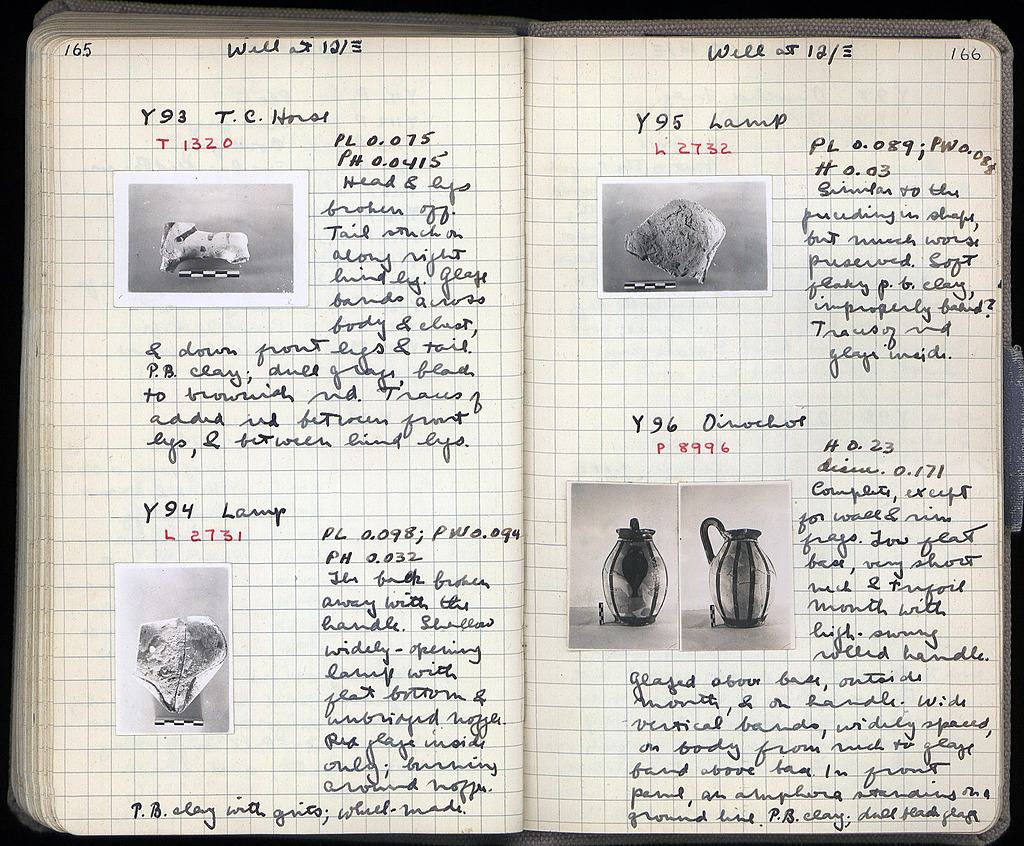 165
Well at 12/Ξ
Y93 T.C. Horse
T 1320
PL 0.075
PH 0.0415
Head & legs
broken off.
Tail stuck on
along right
hind leg. Glaze
bands across
body & chest,
& down front legs & tail.
P.B. clay; dull glaze, black
to brownish red. Traces of
added red between front
legs, & between hind legs.
Y94 Lamp
L 2731
PL 0.098; PW 0.094
PH 0.032
The back broken
away with the
handle. Shallow
widely-opening
lamp with
flat bottom &
unbridged nozzle.
Red glaze inside
only; burning
around nozzle.
P.B. clay with grits; wheel-made.
Well at 12/Ξ
166
Y95 Lamp
L 2732
PL 0.089; PW 0.088
H 0.03
Similar to the
preceding in shape,
but much worse
preserved. Soft
flaky p.b. clay,
improperly baked?
Traces of red
glaze inside.
Y96 Oinochoe
P 8996
H 0.23
diam. 0.171
Complete, except
for wall & rim
frags. Low flat
base, very short
neck & trefoil
mouth with
high-swung
rolled handle.
Glazed above base, outside
mouth, & on handle. Wide
vertical bands, widely spaced,
on body from neck to glaze
band above base. In front
panel, an amphora standing on a
ground line. P.B. clay; dull black glaze